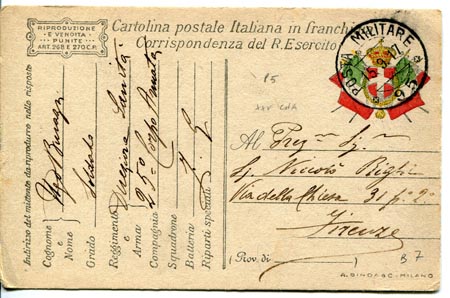 RIPRODUZIONE
E VENDITA
PUNITE
ART. 268 E 270 C.P.
Cartolina postale Italiana in franchi
Corrispondenza del R. Esercito
POSTA MILITARE
95
P5
Indirizzo del mittente da riprodurre nelle risposte
Cognome e Nome
Grado Soldato
Reggimento e Arma Sanità
Compagnia 25º Corpo Armata
Squadrone
Batteria
Riparti speciali
Al Preg.mo Sig.
Sig. Niccolò
Via della Chiesa 31 p.º 2º
Firenze
(Prov. di )
B7
A. MILANO